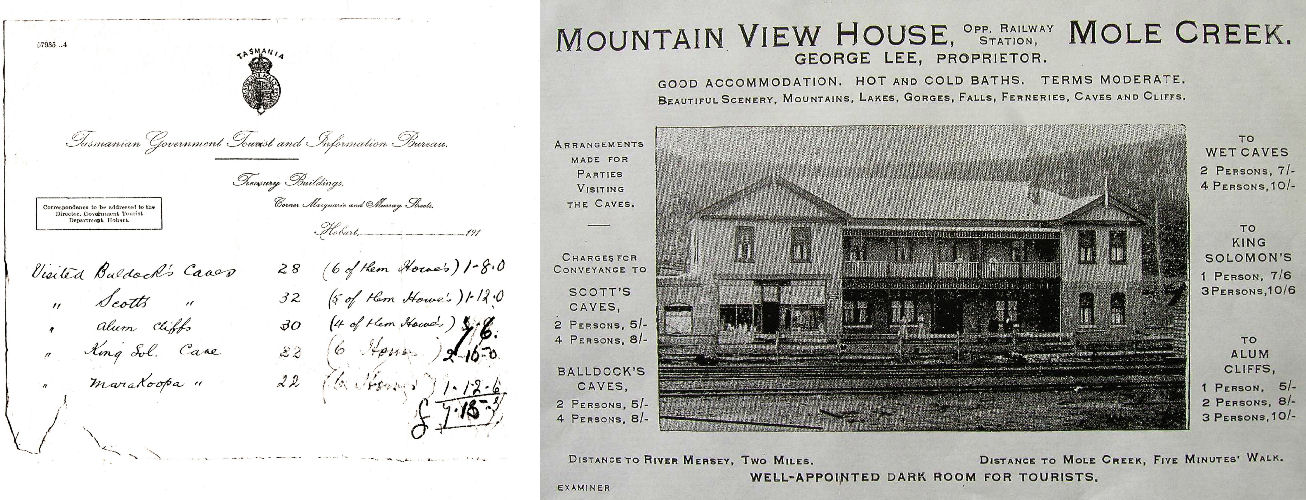 57935..4
TASMANIA
Tasmanian Government Tourist and Information Bureau.
Treasury Buildings,
Corner Macquarie and Murray Streets.
Correspondence to be addressed to the
Director, Government Tourist
Department Hobart.
Hobart, 191
Visited Baldock's Caves 28 (6 of them Howe's) 1-8.0
" Scotts " 32 (5 of them Howe's) 1-12.0
" Alum Cliffs 30 (4 of them Howe's) 7.6.
" King Sol. Cave 22 (6 Howe's) 2-15-0
" Marakoopa " 22 (6 Howe's) 1-12-6
£
MOUNTAIN VIEW HOUSE, OPP. RAILWAY STATION, MOLE CREEK.
GEORGE LEE, PROPRIETOR.
GOOD ACCOMMODATION. HOT AND COLD BATHS. TERMS MODERATE.
BEAUTIFUL SCENERY, MOUNTAINS, LAKES, GORGES, FALLS, FERNERIES, CAVES AND CLIFFS.
ARRANGEMENTS
MADE FOR
PARTIES
VISITING
THE CAVES.
CHARGES FOR
CONVEYANCE TO
SCOTT'S
CAVES,
2 PERSONS, 5/-
4 PERSONS, 8/-
BALLDOCK'S
CAVES,
2 PERSONS, 5/-
4 PERSONS, 8/-
TO
WET CAVES
2 PERSONS, 7/-
4 PERSONS, 10/-
TO
KING
SOLOMON'S
1 PERSON, 7/6
3 PERSONS, 10/6
TO
ALUM
CLIFFS,
1 PERSON, 5/-
2 PERSONS, 8/-
3 PERSONS, 10/-
DISTANCE TO RIVER MERSEY, TWO MILES.
DISTANCE TO MOLE CREEK, FIVE MINUTES' WALK.
WELL-APPOINTED DARK ROOM FOR TOURISTS.
EXAMINER